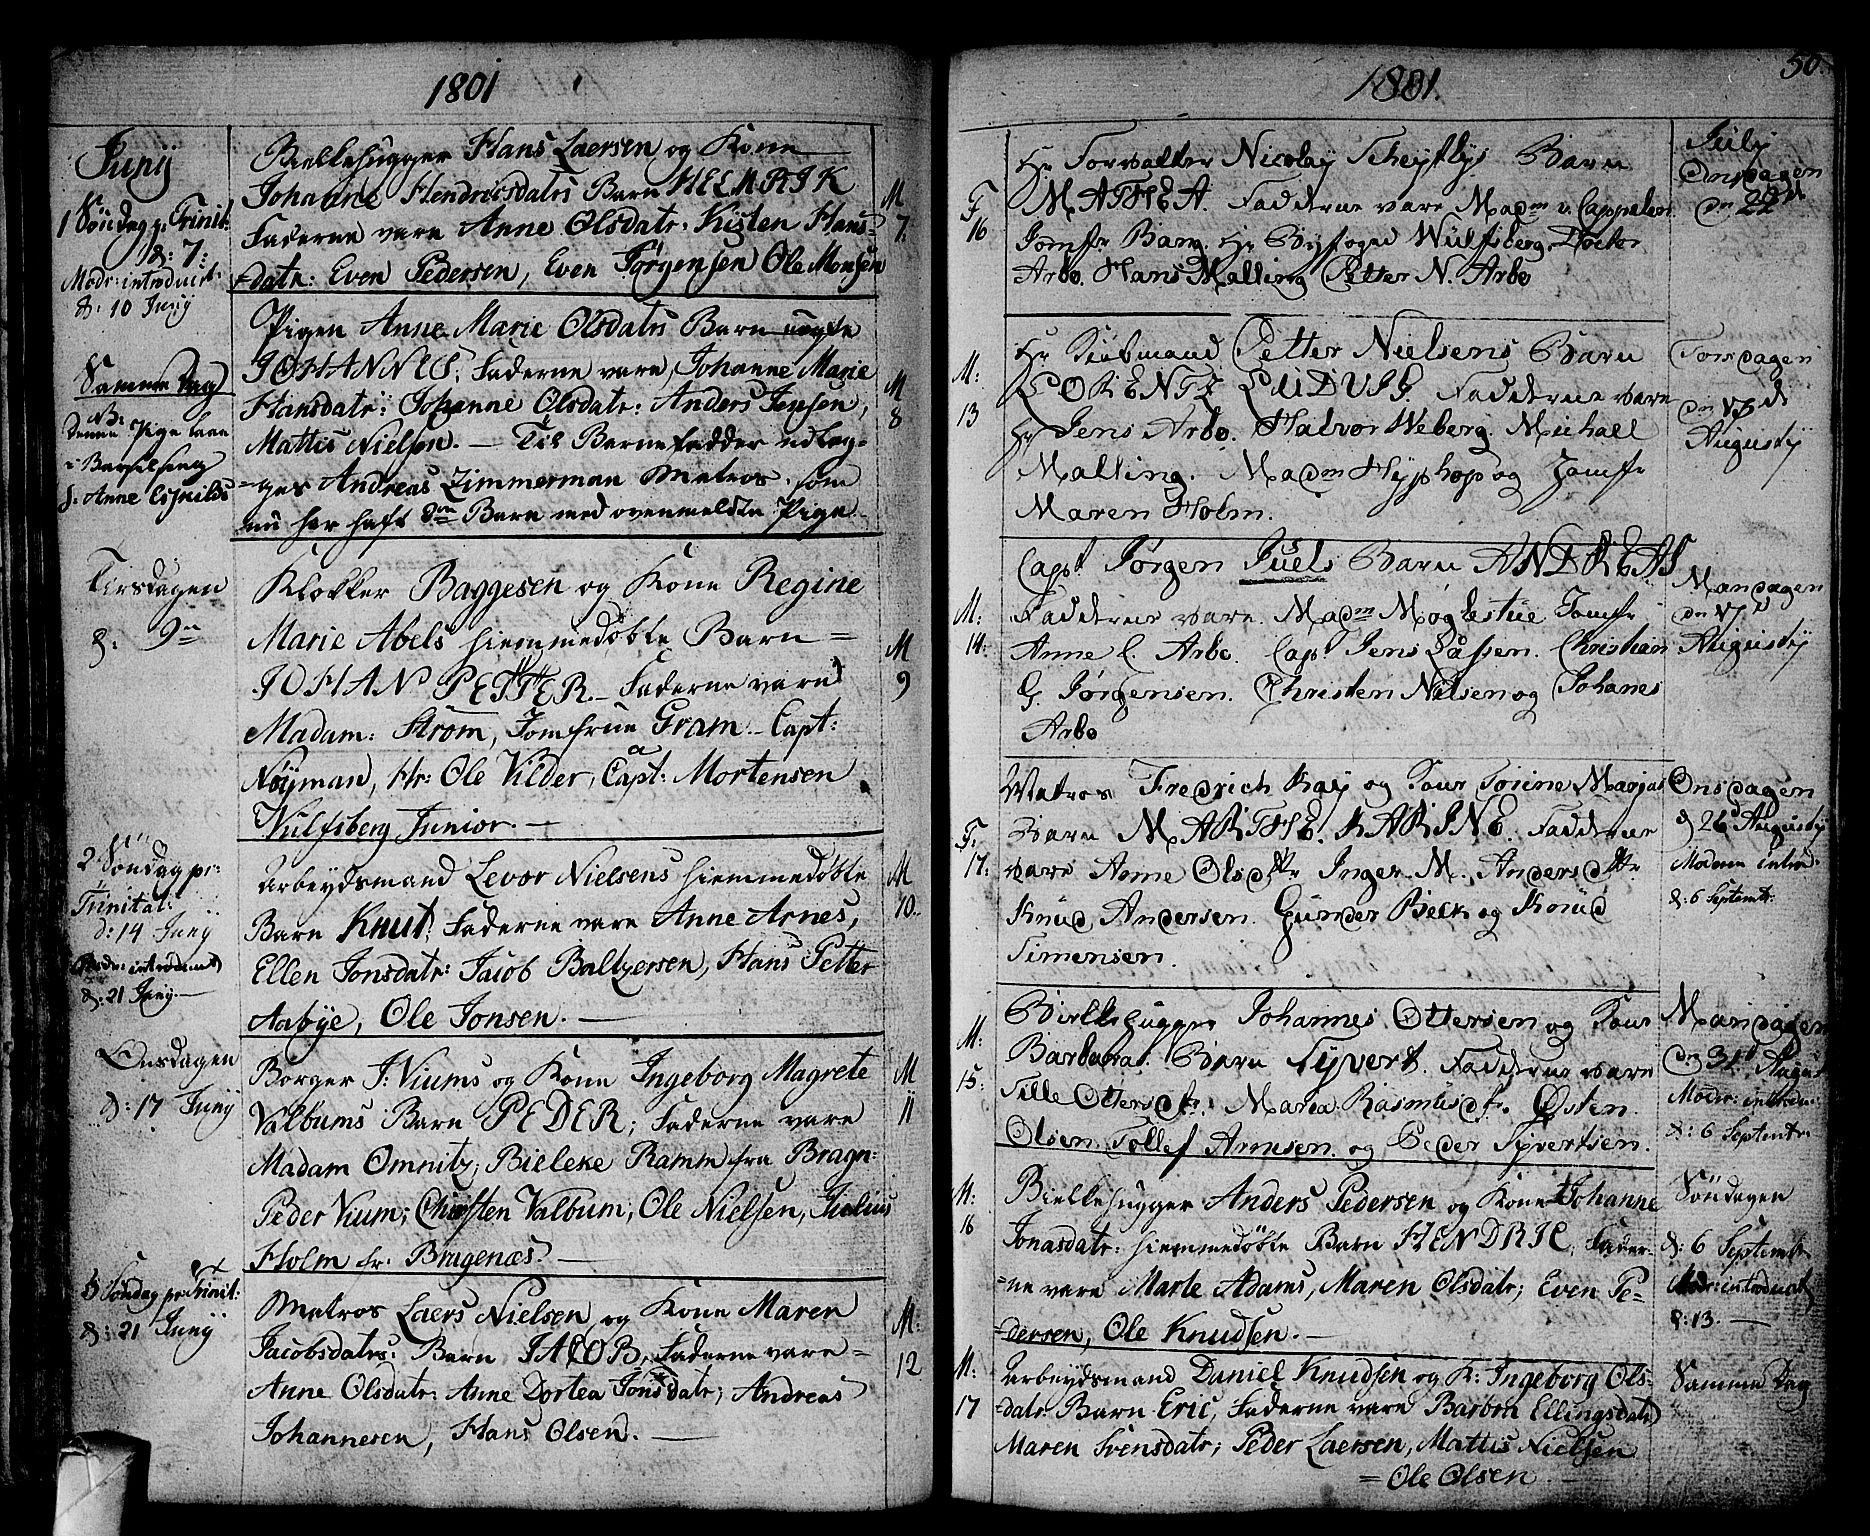 1801
Junij
1 Söndag p: Trinit:
d: 7:
Modr: introduct:
d: 10 Junij
Biellehugger Hans Laersen og Kone
Johanne Hendricsdatrs Barn HELMRIK
Faderne vare Anne Olsdatr: Kisten Hans-
datr: Even Pedersen, Even Jörgensen Ole Monsen
M
7.
Samme Dag
NB:
Denne Pige laae
i Barselseng
h: Anne Espilds
Pigen Anne Marie Olsdatrs Barn uægte
JOHANNES; Faderne vare, Johanne Marie
Hansdatr: Johanne Olsdatr: Anders Jensen,
Mattis Nielsen. — Til Barnefadder udlæg-
ges Andreas Zimmerman Matros, som
nu har haft 2den Barn med ovenmeldte Pige.
M
8
Tirsdagen
d: 9de
Klokker Baggesen og Kone Regine
Marie Abels hiemmedøbte Barn =
JOHAN PETTER. Faderne vare
Madam: Strøm, Jomfrue Gram. Capt:
Nöyman, Hr: Ole Vilder, Capt: Mortensen
Vulfsberg Junior. —
M
9
2 Söndag pr:
Trinitat:
d: 14 Junij
Modr: introducert
d: 21 Junij —
Arbeydsmand Levor Nielsens hiemmedøbte
Barn Knut; Faderne vare Anne Arnes,
Ellen Jonsdatr: Jacob Baltzersen, Hans Petter
Aabye, Ole Jonsen. —
M
10.
Onsdagen
d: 17 Junij
Borger J: Viums og Kone Ingeborg Magrete
Valbums Barn PEDER; Faderne vare
Madam Omnitz, Bieleke Ramm fra Bragn:
Peder Vium; Christen Valbum; Ole Nielsen, Julius
Holm fr: Bragenæs. —
M
11
3 Söndag pr Trinit:
d: 21 Junij
Matros Laers Nielsen og Kone Maren
Jacobsdatrs: Barn JACOB, Faderne vare =
Anne Olsdatr: Anne Dortea Jonsdatr; Andreas
Johannesen, Hans Olsen. —
M:
12
1801.
50.
F
16
Hr Forvalter Nicolaÿ Scheÿtlys Barn
MATHEA. Fadderne vare Madm v Cappelen
Jomfr Bang. Hr Byfoged Wulfsberg, Doctor
Arbo. Hans Malling Petter N. Arbo
Julij
Onsdagen
dn 22d
M:
13
Hr Kiöbmand Petter Nielsens Barn
LORENTZ LUDVIG. Fadderne vare
Hr Jens Arbo. Halvor Weberg. Michall
Malling. Madm Hÿphop og Jomfr
Maren Holm.
Torsdagen
dn 13d
Augustij
M:
14:
Capt Jørgen Juels Barn ANDREAS
Fadderne vare. Madm Møglestue Jomfr
Anne C. Arbo. Cap. Jens Lassen. Christian
G. Jørgensen. Christen Nilsen og Johanes
Arbo
Mandagen
dn 17d
Augustij
F:
17:
Matros Fredrich Kaÿ og Konr Torine Marjas
Barn MARTHE KARINE. Fadderne
vare Anne Olsdttr Inger M. Andersdttr
Knud Andersen. Gunder Beck og Knud
Simensen.
Onsdagen
d 26d Augustij
Moderen introd:
d: 6 Septembr:
M:
15:
Biellehugger Johannes Ottersen og Konr
Barbara. Barn Syvert. Fadderne vare
Sille Ottersdr. Maria Rasmusdr. Østen
Olsen. Tollef Arnesen. og Peder Syvertsen.
Mandagen
dn 31d August
Modr: introdu:
d: 6 Septembr
M:
16
Biellehugger Anders Pedersen og Kone Johanne
Jonasdatr: hiemmedøbte Barn HENDRIC, Fader-
=ne vare Marte Adams, Maren Olsdatr; Even Pe-
=dersen, Ole Knudsen. —
Söndagen
d: 6 Septembr
Modr: introducert
d: 13. —
M:
17
Arbeydsmand Daniel Knudsen og K: Ingeborg Ols-
=datr: Barn Eric, Faderne vare Barbra Ellingsdatr
Maren Svensdatr; Peder Laersen, Mattis Nielsen
= Ole Olsen —
Samme Dag